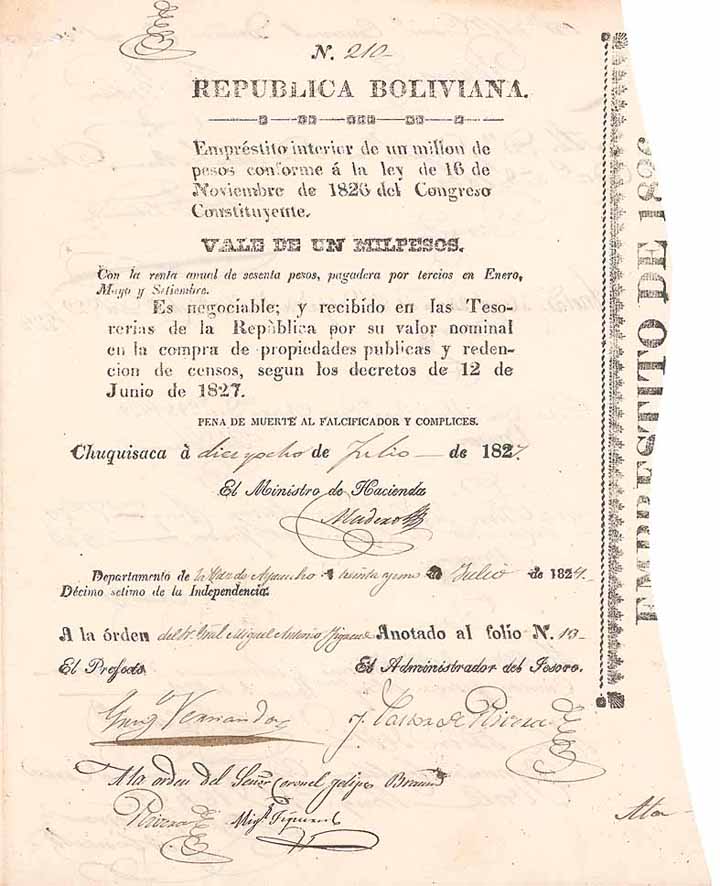 N. 210
REPUBLICA BOLIVIANA.
Empréstito interior de un millon de
pesos conforme á la ley de 16 de
Noviembre de 1826 del Congreso
Constituyente.
VALE DE UN MIL PESOS.
Con la renta anual de sesenta pesos, pagadera por tercios en Enero,
Mayo y Setiembre.
Es negociable; y recibido en las Teso-
rerias de la Repùblica por su valor nominal
en la compra de propiedades publicas y reden-
cion de censos, segun los decretos de 12 de
Junio de 1827.
PENA DE MUERTE AL FALCIFICADOR Y COMPLICES.
Chuquisaca à diez y ocho de Julio de 1827.
El Ministro de Hacienda
Madero
Departamento de Ayacucho à treinta y uno de Julio de 1827.
Décimo setimo de la Independencia.
A la órden del Sr. Gral Miguel Antonio Figueredo Anotado al folio N. 13
El Prefecto El Administrador del Tesoro.
Fernandez J. de Rivera
A la orden del Señor Coronel Felipe Braun
Rivera Migl. Figueredo
EMPRESTITO DE 1826